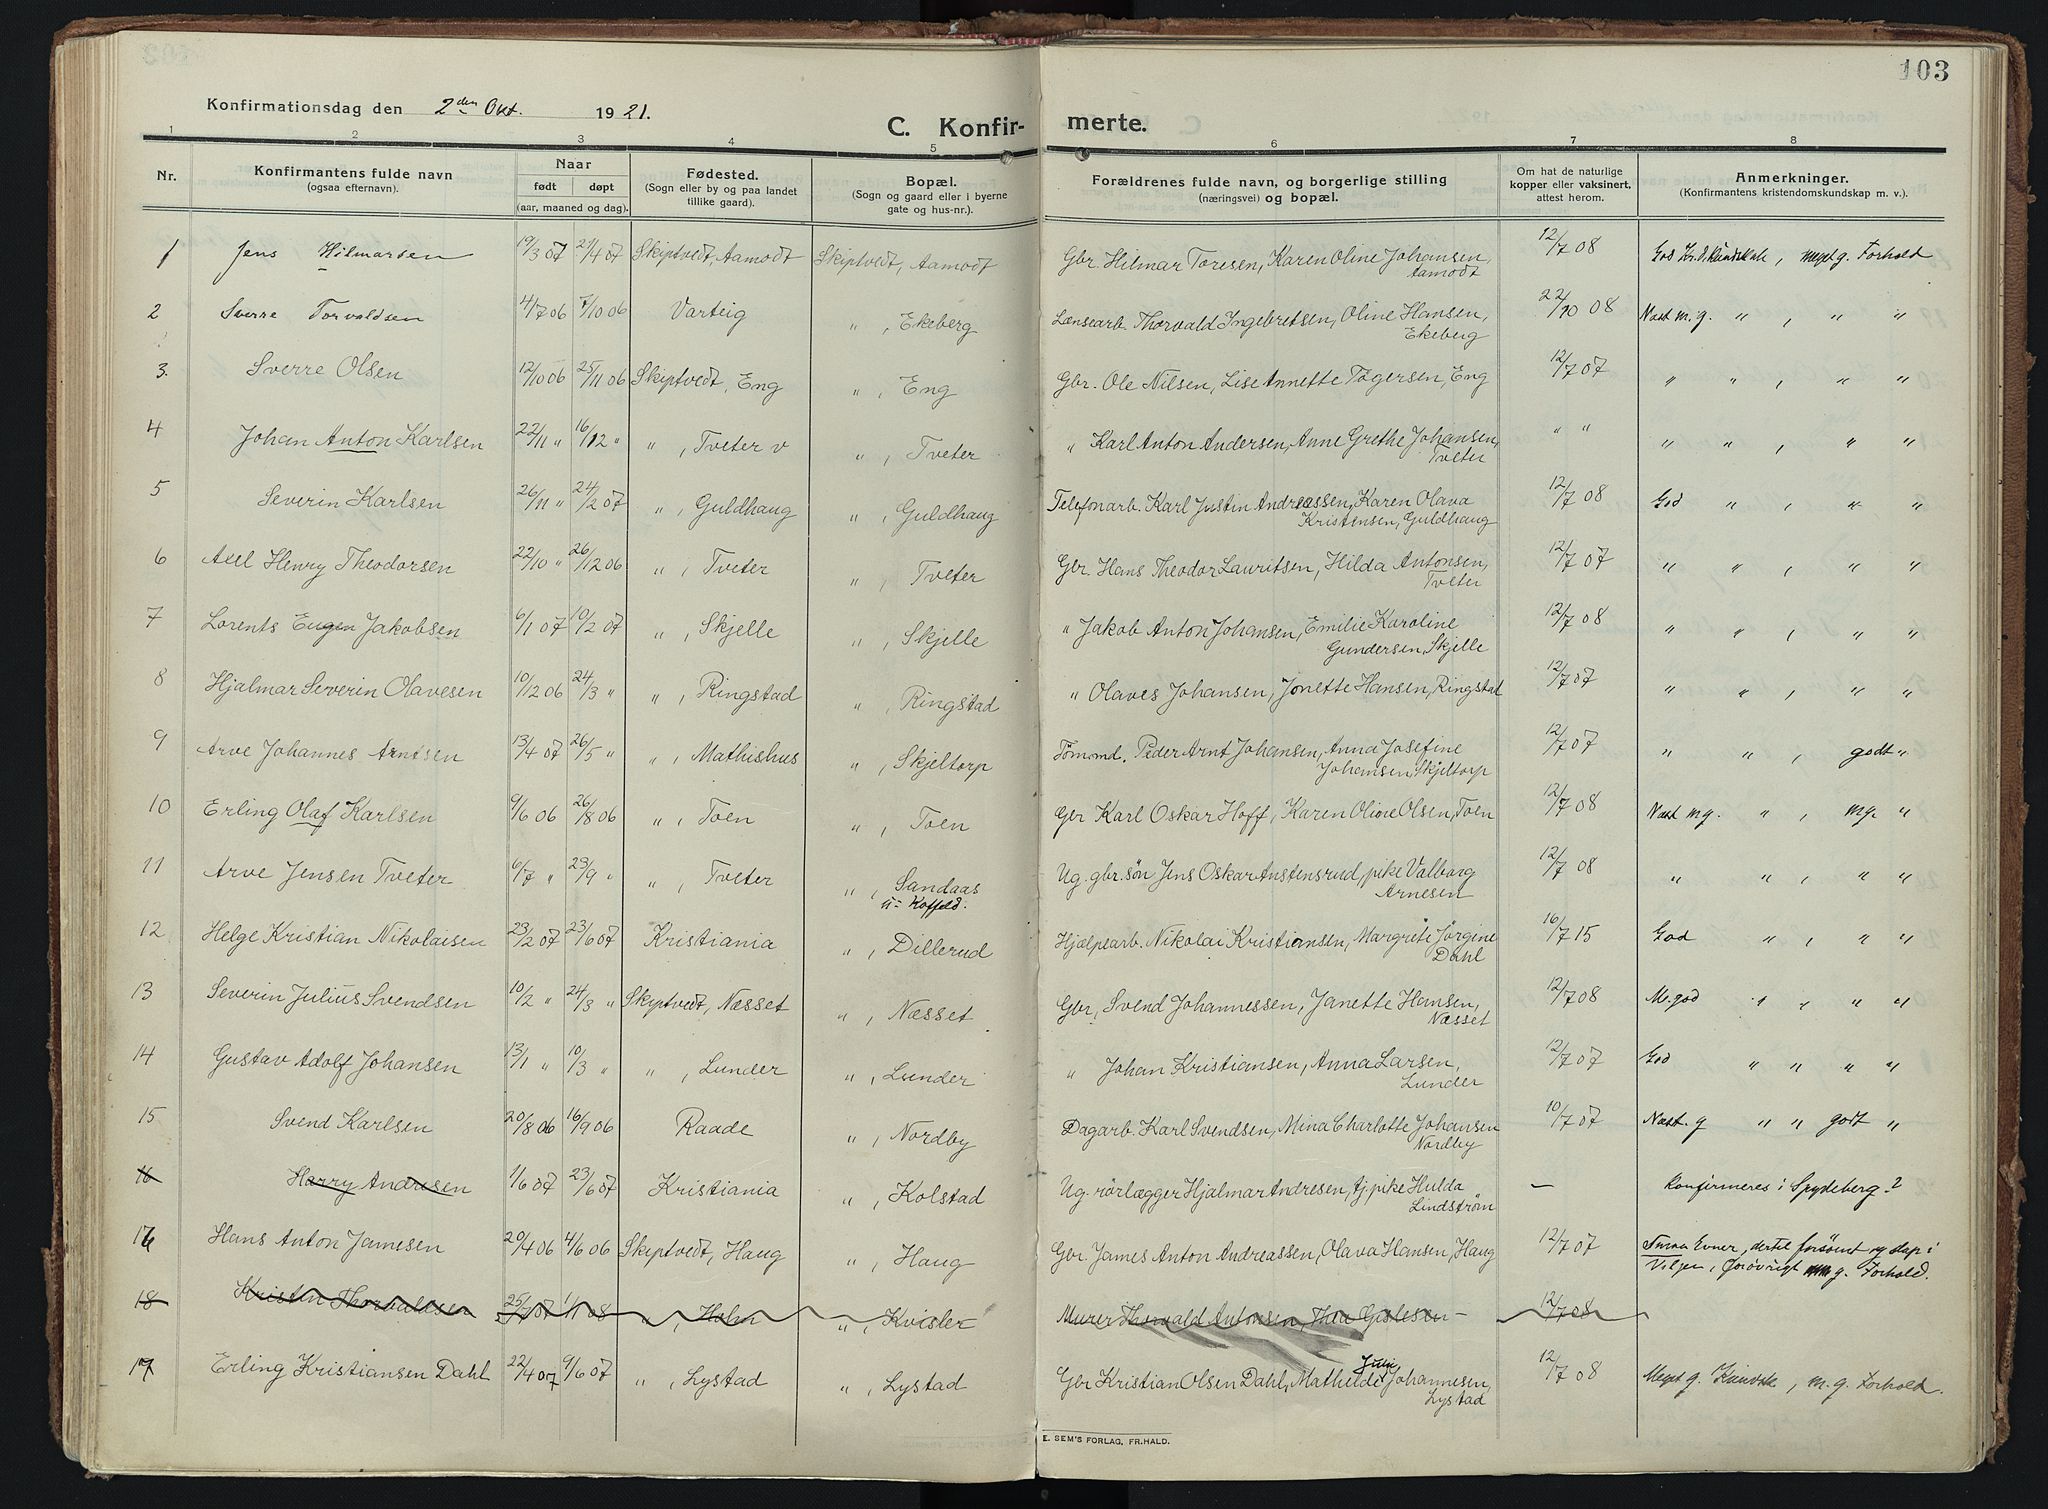 103
Konfirmationsdag den 2den Okt. 1921.
C. Konfir-
merte.
1 2 3 4 5 6 7 8
Nr.
Konfirmantens fulde navn
(ogsaa efternavn).
Naar
født døpt
(aar, maaned og dag).
Fødested.
(Sogn eller by og paa landet
tillike gaard).
Bopæl.
(Sogn og gaard eller i byerne
gate og hus-nr.).
Forældrenes fulde navn, og borgerlige stilling
(næringsvei) og bopæl.
Om hat de naturlige
kopper eller vaksinert,
attest herom.
Anmerkninger.
(Konfirmantens kristendomskundskap m. v.).
1 Jens Hilmarsen 19/3 07 21/4 07 Skiptvedt, Aamodt Skiptvedt, Aamodt Gbr. Hilmar Toresen, Karen Oline Johansen, 12/7 08 God Kr.d.kundskab, meget g. Forhold
Aamodt
2 Sverre Torvaldsen 4/7 06 7/10 06 Varteig " , Ekeberg Lænsearb. Thorvald Ingebretsen, Oline Hansen, 22/10 08 Næst m.g. " , " "
Ekeberg
3. Sverre Olsen 12/10 06 25/11 06 Skiptvedt, Eng " , Eng Gbr. Ole Nilsen, Lise Annette Tøgersen, Eng 12/7 07 " " , " "
4 Johan Anton Karlsen 22/11 " 16/12 " " , Tveter v " , Tveter " Karl Anton Andersen, Anne Grethe Johansen, " " " " , " "
Tveter
5 Severin Karlsen 26/11 " 24/2 07 " , Guldhaug " , Guldhaug Telefonarb. Karl Justin Andreassen, Karen Olava 12/7 08 God " , " "
Kristensen, Guldhaug
6 Axel Henry Theodorsen 22/10 " 26/12 06 " , Tveter " , Tveter Gbr. Hans Theodor Lauritsen, Hilda Antonsen, 12/7 07 " " , " "
Tveter
7 Lorents Eugen Jakobsen 6/1 07 10/2 07 " , Skjelle " , Skjelle " Jakob Anton Johansen, Emilie Karoline 12/7 08 " " , " "
Gundersen, Skjelle
8 Hjalmar Severin Olavesen 10/12 06 24/3 " " , Ringstad " , Ringstad " Olaves Johansen, Jonette Hansen, Ringstad 12/7 07 " " , " "
9 Arve Johannes Arntsen 13/4 07 26/5 " " , Mathishus " , Skjeltorp Tømmd. Peder Arnt Johansen, Anna Josefine 12/7 07 " " , godt "
Johansen, Skjeltorp
10 Erling Olaf Karlsen 9/6 06 26/8 06 " , Toen " , Toen Gbr Karl Oskar Hoff, Karen Oline Olsen, Toen 12/7 08 Næst mg. " , mg. "
11 Arve Jensen Tveter 6/7 " 23/9 " " , Tveter " , Sandaas Ug. gbr. søn Jens Oskar Austensrud, pike Valborg 12/7 08 " " , " "
u= Koffeld. Arnesen
12 Helge Kristian Nikolaisen 23/2 07 23/6 07 Kristiania " , Dillerud Hjælpearb. Nikolai Kristiansen, Margrete Jørgine 16/7 15 God " , " "
Dahl
13 Severin Julius Svendsen 10/2 " 24/3 " Skiptvedt, Næsset " , Næsset Gbr, Svend Johannessen, Janette Hansen, 12/7 08 M. god " , " "
Næsset
14 Gustav Adolf Johansen 13/1 " 10/3 " " , Lunder " , Lunder " Johan Kristiansen, Anna Larsen, 12/7 07 God " " " "
Lunder
15 Svend Karlsen 20/8 06 16/9 06 Raade " , Nordby Dagarb. Karl Svendsen, Mina Charlotte Johansen 10/7 07 Næst. g " " godt "
Nordby
16 Harry Andresen 1/6 07 23/6 07 Kristiania " , Kolstad Ug. rørlægger Hjalmar Andresen, tj.pike Hulda — Konfirmeres i Spydeberg?
Lindstrøm
16 Hans Anton Jamesen 20/4 06 4/6 06 Skiptvedt, Haug " , Haug Gbr. James Anton Andreassen, Olava Hansen, Haug 12/7 07 Smaa Evner, dertil forsømt og slap i
Viljen, forøvrigt m. g. Forhold.
18 Kristin Thorvaldsen 25/7 07 1/1 08 " , Holm " , Kvisler Murer Thorvald Antonsen, Thea Gislesen — 12/7 08
17 Erling Kristiansen Dahl 22/4 07 9/6 07 " , Lystad " , Lystad Gbr Kristian Olsen Dahl, Mathilde Julie Johannesen, 12/7 08 Meget g. Kundsk, m. g. Forhold.
Lystad
E. SEM'S FORLAG, FR.HALD.